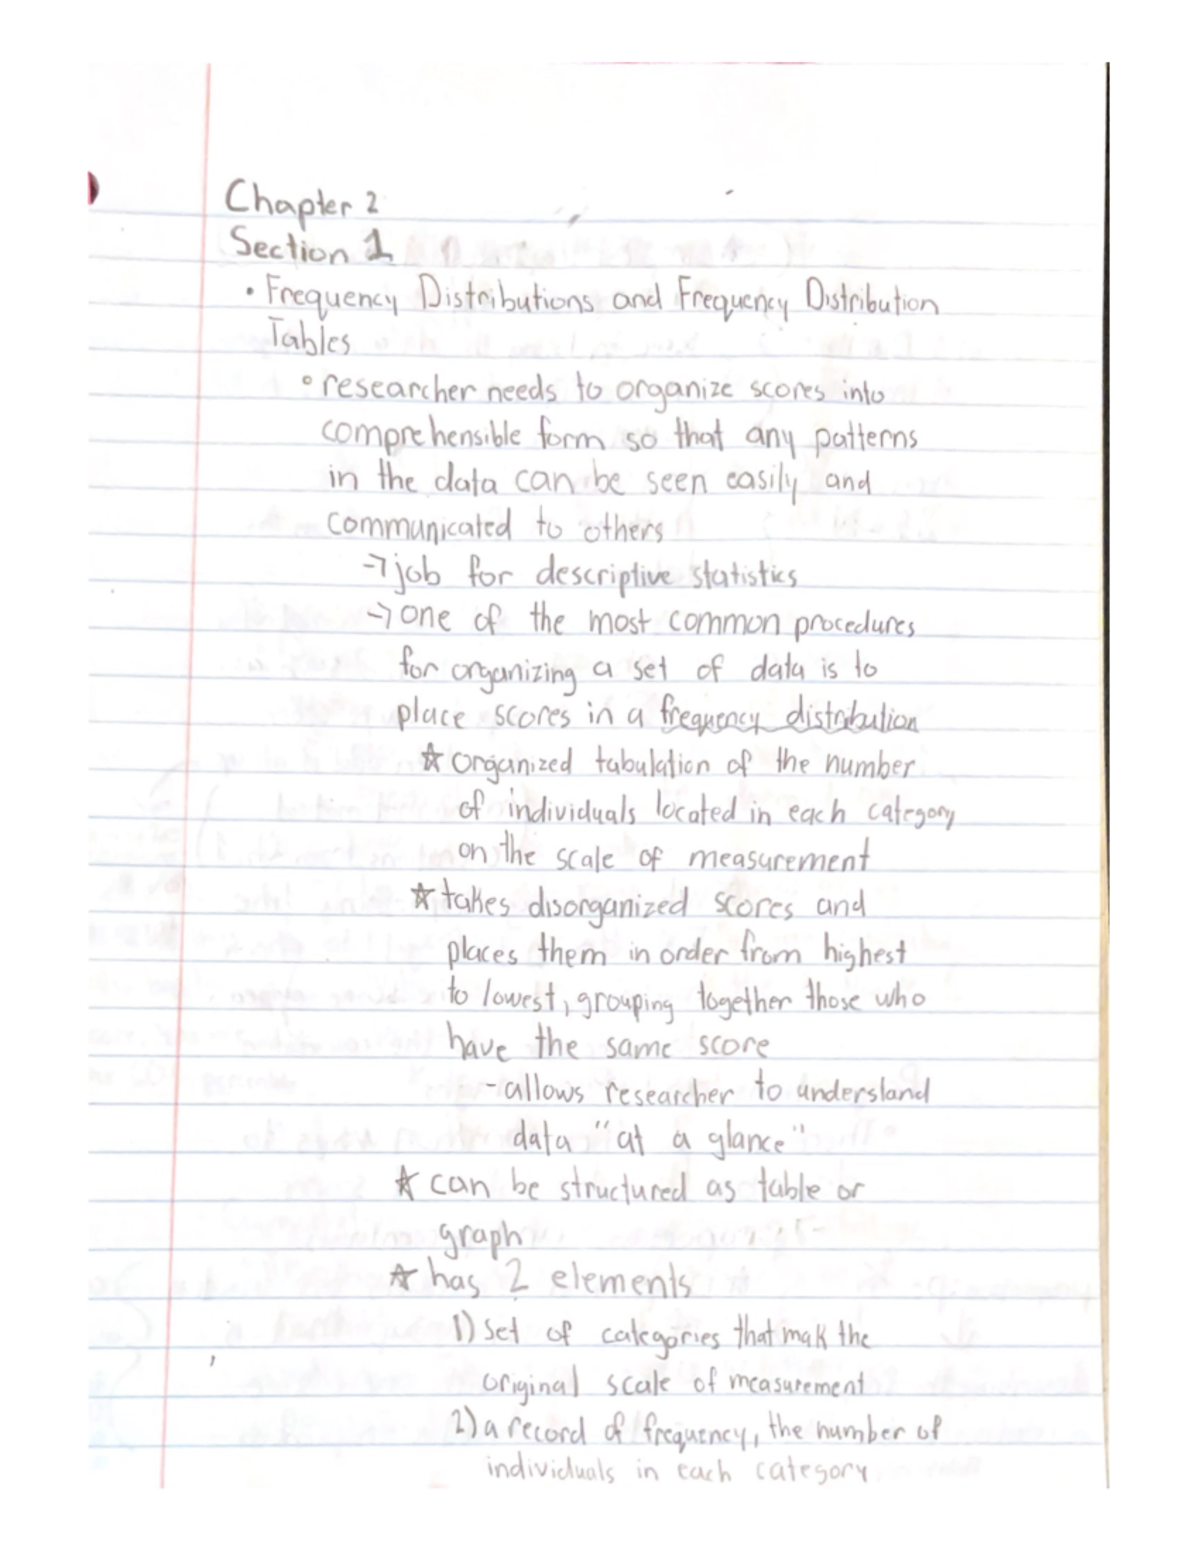 Chapter 2
Section 1
• Frequency Distributions and Frequency Distribution
Tables
° researcher needs to organize scores into
comprehensible form so that any patterns
in the data can be seen easily and
communicated to others
→ job for descriptive statistics
→ one of the most common procedures
for organizing a set of data is to
place scores in a frequency distribution
☆ organized tabulation of the number
of individuals located in each category
on the scale of measurement
☆ takes disorganized scores and
places them in order from highest
to lowest, grouping together those who
have the same score
- allows researcher to understand
data "at a glance"
☆ can be structured as table or
graph
☆ has 2 elements
1) set of categories that mak the
original scale of measurement
2) a record of frequency, the number of
individuals in each category